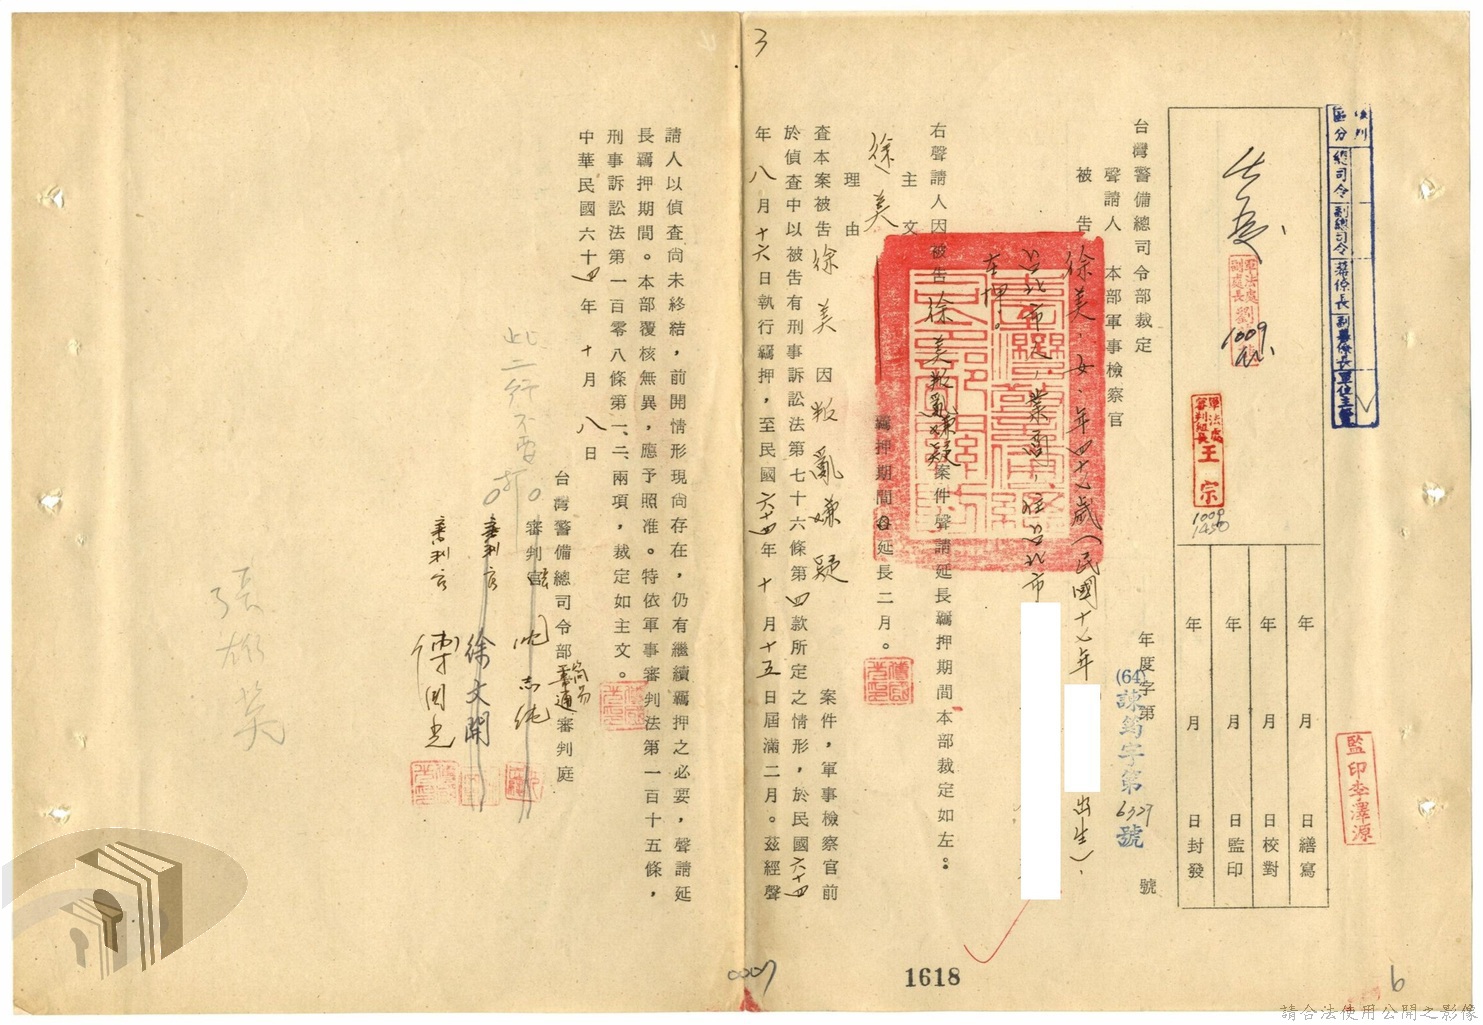 後判
區分
總司令
副總司令
幕僚長
副幕僚長
單位主管
軍法處
副處長
1009
軍法處
審判組長
王宗
1009
1450
年 月 日繕寫
年 月 日校對
年 月 日監印
年 月 日封發
監印李澤源
台灣警備總司令部裁定
年度字第 號
(64)諫筠字第6327號
聲請人 本部軍事檢察官
被告 徐美,女,年四十七歲(民國十七年
出生),
台北市人,業商,住台北市
在押。
右聲請人因被告徐美叛亂嫌疑案件聲請延長羈押期間本部裁定如左。
主文
徐美
羈押期間延長二月。
理由
查本案被告徐美因叛亂嫌疑案件,軍事檢察官前
於偵查中以被告有刑事訴訟法第七十六條第四款所定之情形,於民國六十四
年八月十六日執行羈押,至民國六十四年十月十五日屆滿二月。茲經聲
請人以偵查尚未終結,前開情形現尚存在,仍有繼續羈押之必要,聲請延
長羈押期間。本部覆核無異,應予照准。特依軍事審判法第一百十五條,
刑事訴訟法第一百零八條第一、二兩項,裁定如主文。
中華民國六十四年十月八日
台灣警備總司令部普通審判庭
審判官
審判官 徐文開
審判官 傅國光
此二行不要打
張雄英
3
0007
1618
6
請合法使用公開之影像